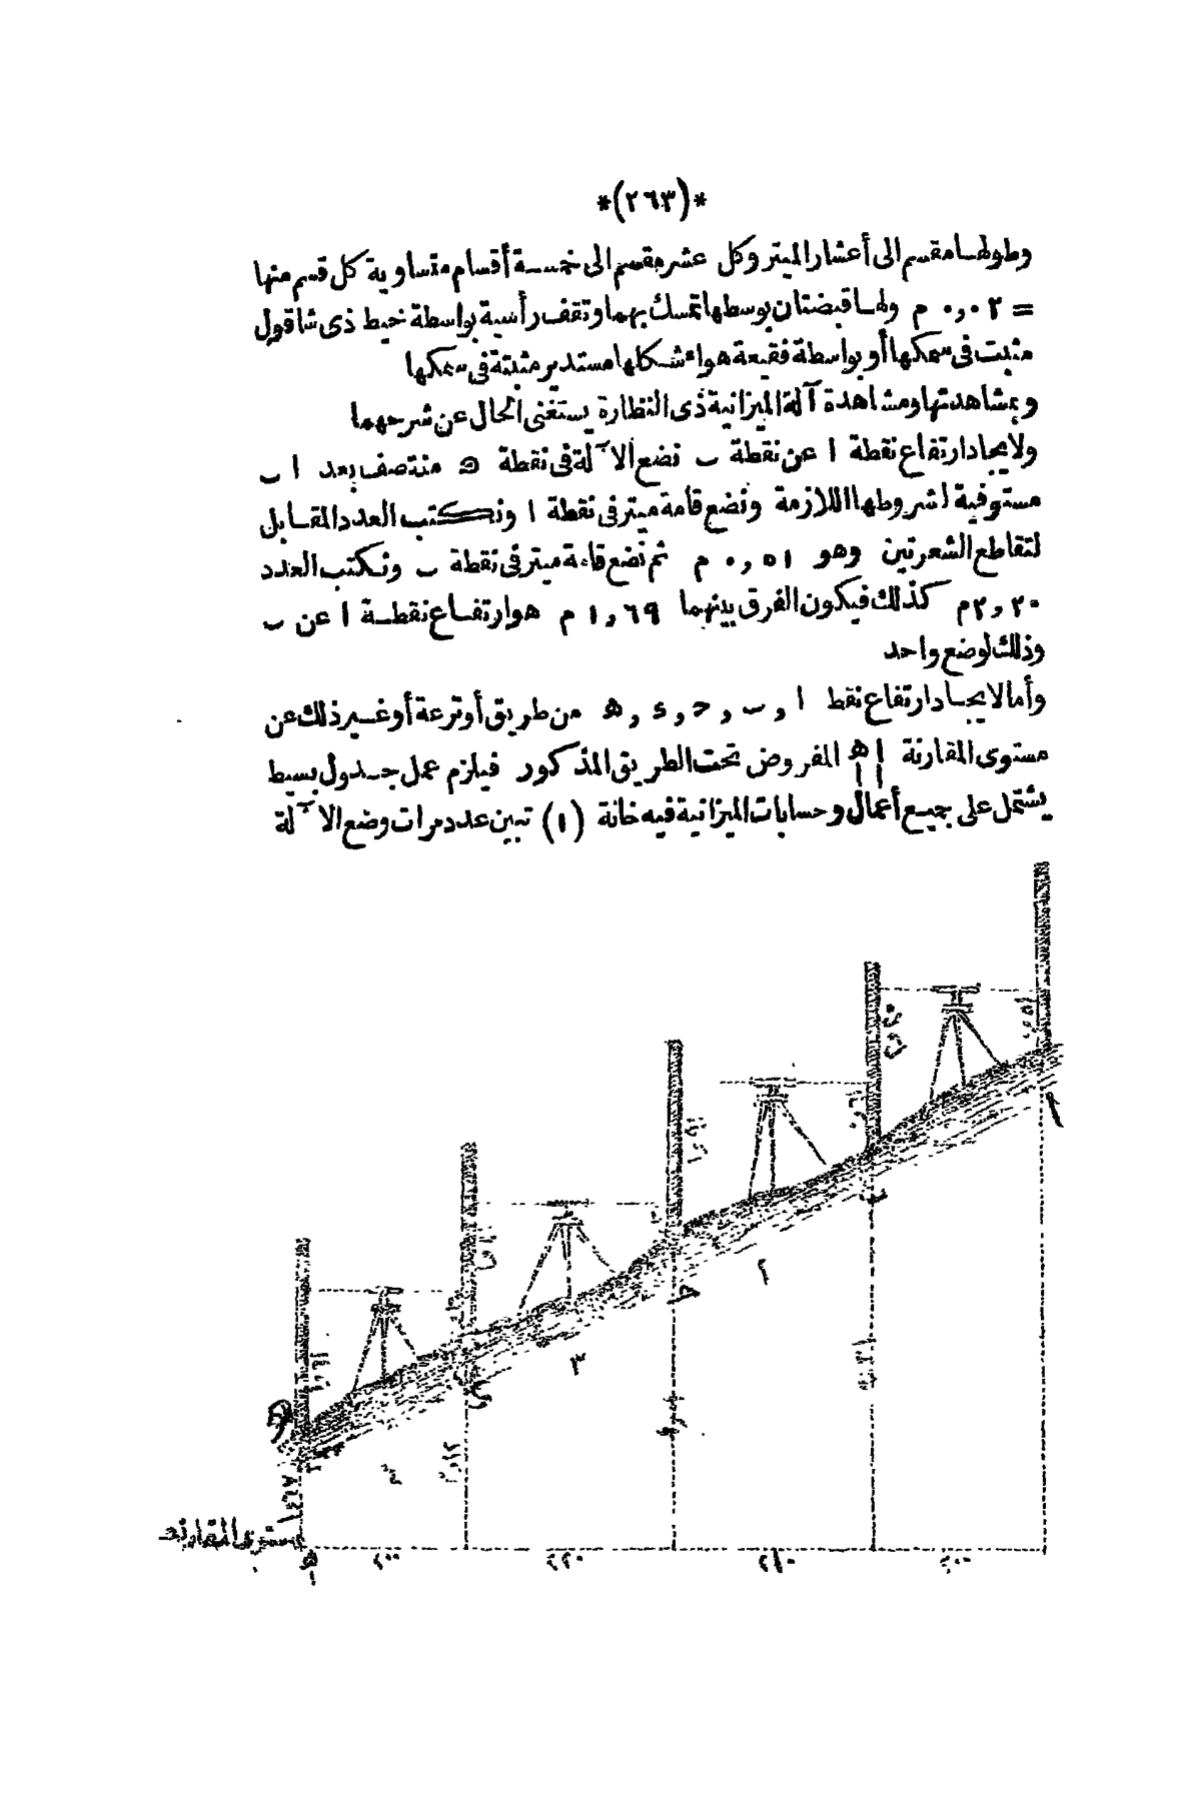 *(٢٦٣)*
وطولها مقسم الى أعشار الميتر وكل عشر مقسم الى خمسة أقسام متساوية كل قسم منها
= ٠,٠٢ م ولها قبضتان بوسطها تمسك بهما وتقف رأسية بواسطة خيط ذى شاقول
مثبت فى سمكها أو بواسطة فقيعة هواء شكلها مستدير مثبتة فى سمكها
وبمشاهدتها ومشاهدة آلة الميزانية ذى النظارة يستغنى الحال عن شرحهما
ولايجاد ارتفاع نقطة ا عن نقطة ب نضع الآلة فى نقطة ه منتصف بعد ا ب
مستوفية لشروطها اللازمة ونضع قامة ميتر فى نقطة ا ونكتب العدد المقابل
لتقاطع الشعرتين وهو ٠,٥١ م ثم نضع قامة ميتر فى نقطة ب ونكتب العدد
٢,٢٠ م كذلك فيكون الفرق بينهما ١,٦٩ م هو ارتفاع نقطة ا عن ب
وذلك لوضع واحد
وأما لايجاد ارتفاع نقط ا , ب , ح , د , ه من طريق أو ترعة أو غير ذلك عن
مستوى المقارنة اَ هَ المفروض تحت الطريق المذكور فيلزم عمل جدول بسيط
يشتمل على جميع أعمال وحسابات الميزانية فيه خانة (١) تبين عدد مرات وضع الآلة
ا
ب
٢
ح
٣
د
ه
مستوى المقارنة